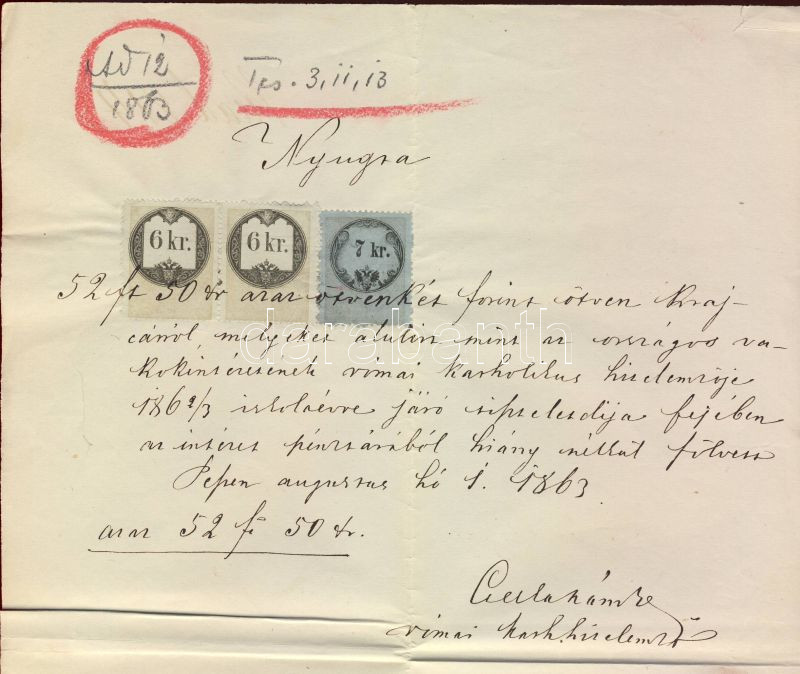 Ad 12
1863
Tps. 3,11,13
Nyugta
6 kr. 6 kr. 7 kr.
52 ft 50 kr azaz ötvenkét forint ötven kraj-
cárról, melyeket alulirt mint az országos va-
kokintézetének római katholikus hitelemzője
186 2/3 iskolaévre járó tiszteletdija fejében
az intézet pénztárából hiány nélkül fölvett
Pesten augusztus hó 1. 1863
azaz 52 ft 50 kr.
római kath. hitelemző
darabanth.com